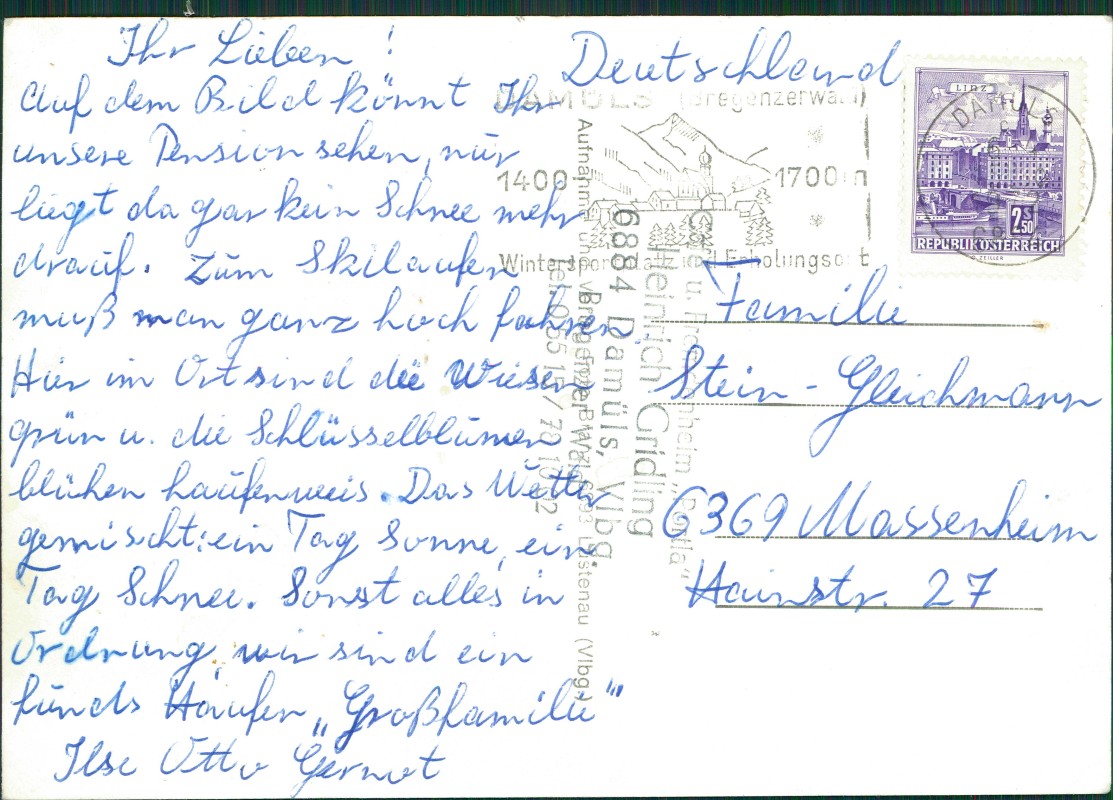 Ihr Lieben!
Auf dem Bild könnt Ihr
unsere Pension sehen, nur
liegt da gar kein Schnee mehr
drauf. Zum Skilaufen
muß man ganz hoch fahren.
Hier im Ort sind die Wiesen
grün u. die Schlüsselblumen
blühen haufenweis. Das Wetter
gemischt: ein Tag Sonne, ein
Tag Schnee. Sonst alles in
Ordnung, wir sind ein
Haufen „Großfamilie"
Ilse Otto Gernot
Deutschland
DAMÜLS (Bregenzerwald)
1400- 1700m
Wintersportplatz und Erholungsort
LINZ
2 S 50
REPUBLIK ÖSTERREICH
DAMÜLS
Familie
Stein-Gleichmann
6369 Massenheim
Hainstr. 27
Heinrich Gridling
6884 Damüls, Vlbg.
Aufnahme und Verlag: Foto Branz, 6893 Lustenau (Vlbg.)